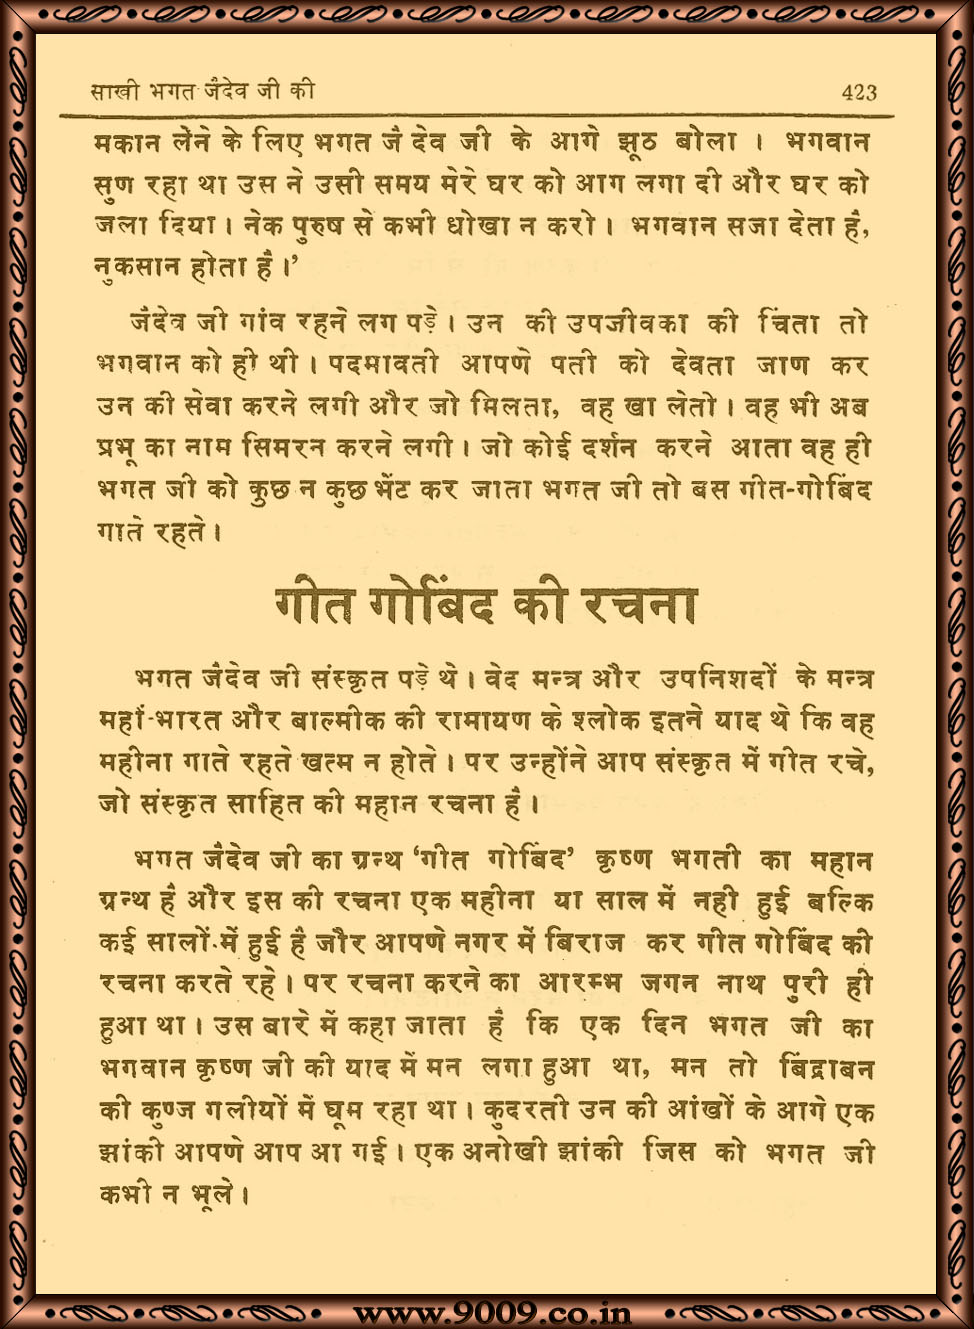 साखी भगत जैदेव जी की 423
मकान लेंने के लिए भगत जै देव जी के आगे झूठ बोला । भगवान
सुण रहा था उस ने उसी समय मेरे घर को आग लगा दी और घर को
जला दिया । नेक पुरुष से कभी धोखा न करो । भगवान सजा देता है,
नुकसान होता है ।’
जैदेव जी गांव रहने लग पड़े । उन की उपजीवका की चिंता तो
भगवान को ही थी । पदमावती आपणे पती को देवता जाण कर
उन की सेवा करने लगी और जो मिलता, वह खा लेतो । वह भी अब
प्रभू का नाम सिमरन करने लगी । जो कोई दर्शन करने आता वह ही
भगत जी को कुछ न कुछ भेंट कर जाता भगत जी तो बस गीत-गोबिंद
गाते रहते ।
गीत गोबिंद की रचना
भगत जैदेव जी संस्कृत पड़े थे । वेद मन्त्र और उपनिशदों के मन्त्र
महां-भारत और बाल्मीक की रामायण के श्लोक इतने याद थे कि वह
महीना गाते रहते खत्म न होते । पर उन्होंने आप संस्कृत में गीत रचे,
जो संस्कृत साहित की महान रचना है ।
भगत जैदेव जी का ग्रन्थ ‘गीत गोबिंद’ कृष्ण भगती का महान
ग्रन्थ है और इस की रचना एक महीना या साल में नही हुई बल्कि
कई सालों में हुई है जौर आपणे नगर में बिराज कर गीत गोबिंद की
रचना करते रहे । पर रचना करने का आरम्भ जगन नाथ पुरी ही
हुआ था । उस बारे में कहा जाता है कि एक दिन भगत जी का
भगवान कृष्ण जी की याद में मन लगा हुआ था, मन तो बिंद्राबन
की कुण्ज गलीयों में घूम रहा था । कुदरती उन की आंखों के आगे एक
झांकी आपणे आप आ गई । एक अनोखी झांकी जिस को भगत जी
कभी न भूले ।
www.9009.co.in